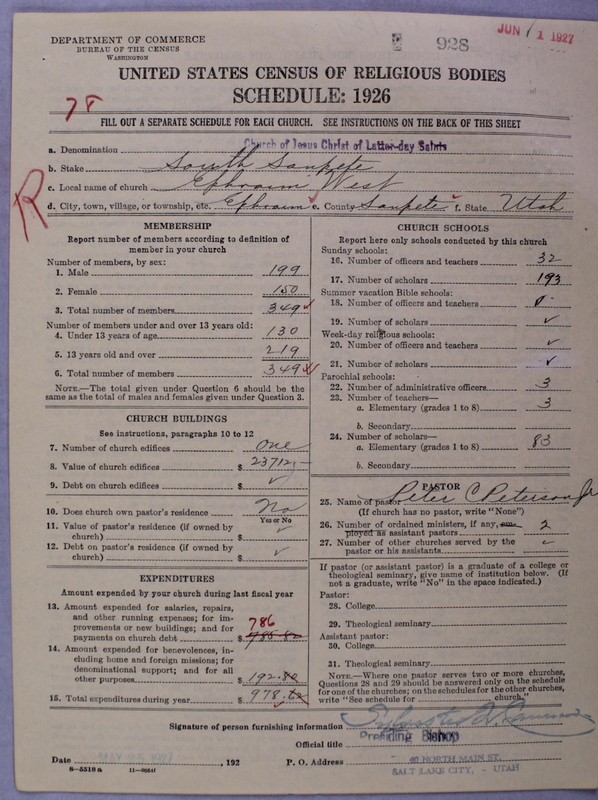 DEPARTMENT OF COMMERCE
BUREAU OF THE CENSUS
WASHINGTON
928
JUN 1 1927
UNITED STATES CENSUS OF RELIGIOUS BODIES
SCHEDULE: 1926
78
FILL OUT A SEPARATE SCHEDULE FOR EACH CHURCH. SEE INSTRUCTIONS ON THE BACK OF THIS SHEET
a. Denomination Church of Jesus Christ of Latter-day Saints
b. Stake South Sanpete
c. Local name of church Ephraim West
R
d. City, town, village, or township, etc. Ephraim e. County Sanpete f. State Utah
MEMBERSHIP
Report number of members according to definition of
member in your church
Number of members, by sex:
1. Male 199
2. Female 150
3. Total number of members 349
Number of members under and over 13 years old:
4. Under 13 years of age 130
5. 13 years old and over 219
6. Total number of members 349
NOTE.—The total given under Question 6 should be the
same as the total of males and females given under Question 3.
CHURCH BUILDINGS
See instructions, paragraphs 10 to 12
7. Number of church edifices One
8. Value of church edifices $ 23712.—
9. Debt on church edifices $ ✓
10. Does church own pastor's residence? No
Yes or No
11. Value of pastor's residence (if owned by
church) $ ✓
12. Debt on pastor's residence (if owned by
church) $ ✓
EXPENDITURES
Amount expended by your church during last fiscal year
13. Amount expended for salaries, repairs,
and other running expenses; for im-
provements or new buildings; and for
payments on church debt $ 786
14. Amount expended for benevolences, in-
cluding home and foreign missions; for
denominational support; and for all
other purposes $ 192.80
15. Total expenditures during year $ 978.
CHURCH SCHOOLS
Report here only schools conducted by this church
Sunday schools:
16. Number of officers and teachers 32
17. Number of scholars 193
Summer vacation Bible schools:
18. Number of officers and teachers 0
19. Number of scholars ✓
Week-day religious schools:
20. Number of officers and teachers ✓
21. Number of scholars ✓
Parochial schools:
22. Number of administrative officers 3
23. Number of teachers—
a. Elementary (grades 1 to 8) 3
b. Secondary
24. Number of scholars—
a. Elementary (grades 1 to 8) 83
b. Secondary
PASTOR
25. Name of pastor Peter C Peterson Jr
(If church has no pastor, write "None")
26. Number of ordained ministers, if any, em-
ployed as assistant pastors 2
27. Number of other churches served by the
pastor or his assistants
If pastor (or assistant pastor) is a graduate of a college or
theological seminary, give name of institution below. (If
not a graduate, write "No" in the space indicated.)
Pastor:
28. College
29. Theological seminary
Assistant pastor:
30. College
31. Theological seminary
NOTE.—Where one pastor serves two or more churches,
Questions 28 and 29 should be answered only on the schedule
for one of the churches; on the schedules for the other churches,
write "See schedule for church."
Signature of person furnishing information Sylvester Q. Cannon
Official title Presiding Bishop
Date MAY 25 1927, 192 P. O. Address 40 NORTH MAIN ST.
SALT LAKE CITY, - UTAH
8—5518a 11—9664f